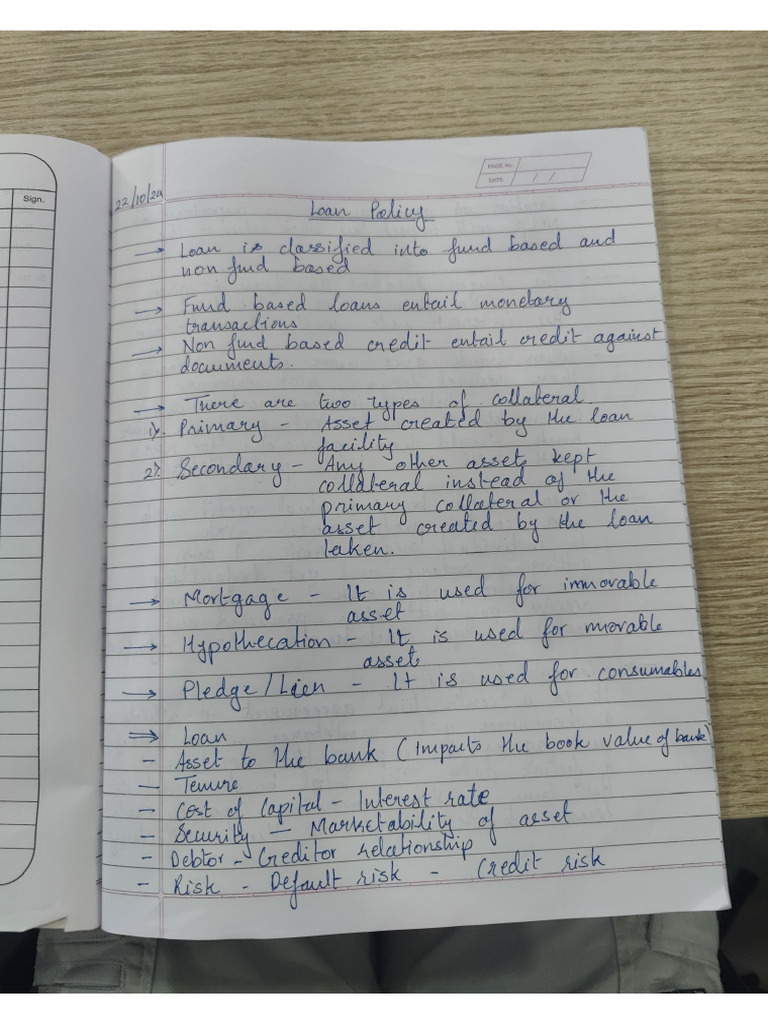 Sign.
PAGE No.
DATE / /
22/10/24
Loan Policy
→ Loan is classified into fund based and
non fund based
→ Fund based loans entail monetary
transactions
→ Non fund based credit entail credit against
documents.
→ There are two types of collateral.
1). Primary - Asset created by the loan
facility
2). Secondary - Any other assets kept
collateral instead of the
primary collateral or the
asset created by the loan
taken.
→ Mortgage - It is used for immovable
asset
→ Hypothecation - It is used for movable
assets
→ Pledge/Lien - It is used for consumables
⇒ Loan
- Asset to the bank (Impacts the book value of bank)
- Tenure
- Cost of Capital - Interest rate
- Security - Marketability of asset
- Debtor - Creditor relationship
- Risk - Default risk - Credit risk